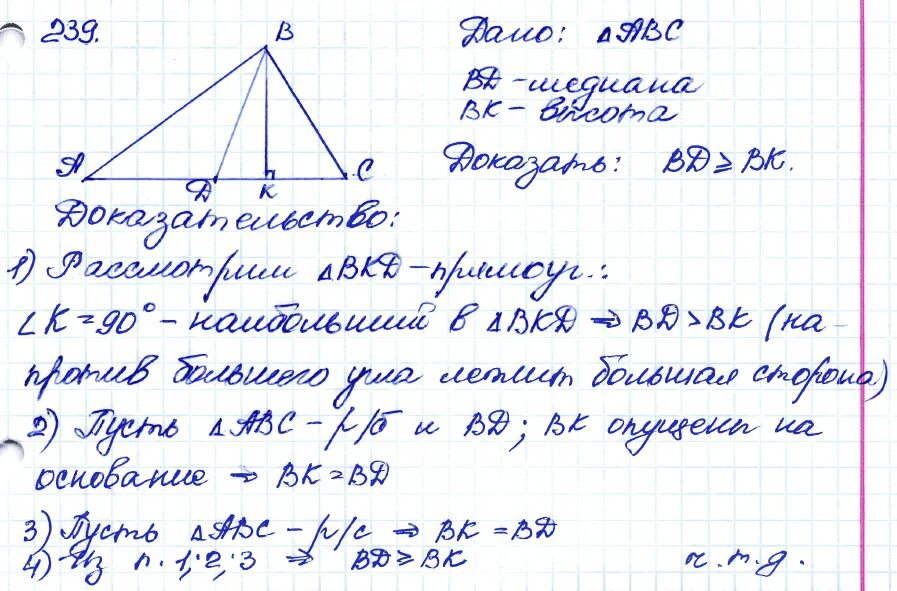 239.
B
A
D
K
C
Дано: △ABC
BD - медиана
BK - высота
Доказать: BD ⩾ BK.
Доказательство:
1) Рассмотрим △BKD - прямоуг.:
∠K = 90° - наибольший в △BKD ⇒ BD > BK (на-
против большего угла лежит большая сторона)
2) Пусть △ABC - р/б и BD; BK опущены на
основание ⇒ BK = BD
3) Пусть △ABC - р/с ⇒ BK = BD
4) Из п. 1; 2; 3 ⇒ BD ⩾ BK ч.т.д.